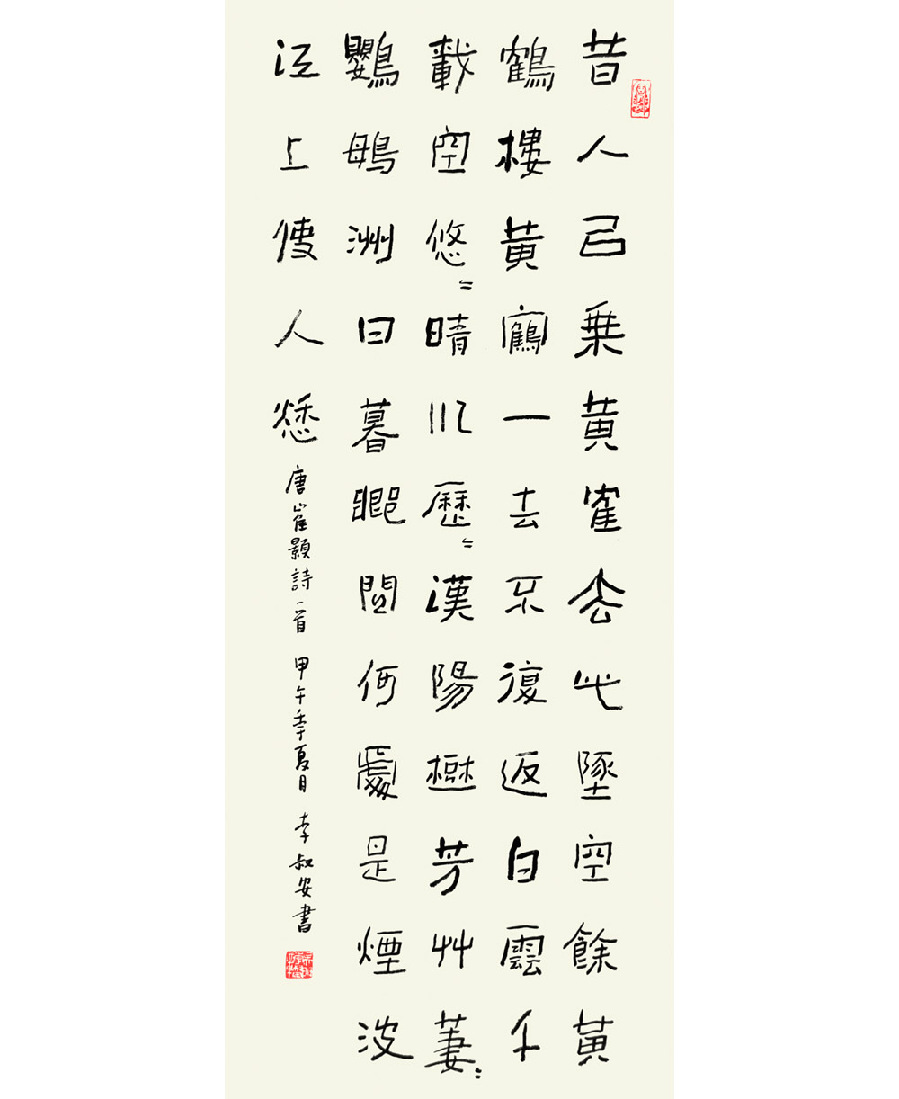 昔人已乘黄隺去此墬空餘黄
鶴樓黄鶴一去不復返白雲千
載空悠〻晴川歷〻漢陽樹芳艸萋〻
鸚䳇洲日暮鄉関何處是煙波
江上使人愁 唐崔顥詩一首 甲午季夏月 李叔安書